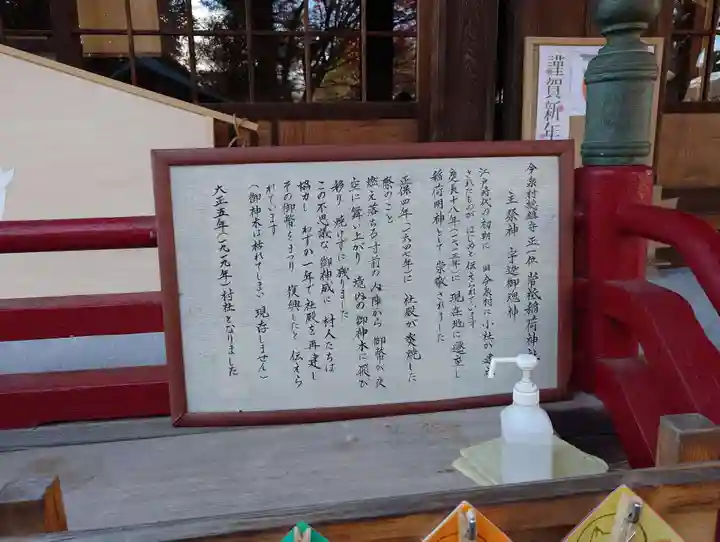 今泉村鎮守 正一位 常祇稲荷神社
主祭神 宇迦御魂神
江戸時代の初期に 旧今泉村に小社が
されたものが はじめと伝えられています
慶長十八年(一六一三年)に 現在地に遷座し
稲荷明神として 崇敬されました
正保四年(一六四七年)に 社殿が炎焼した
際のこと
燃え落ちる寸前の内陣から 御幣が夜
空に舞い上がり 境内の御神木に飛び
移り 焼けずに残りました
この不思議な御神威に 村人たちは
協力し わずか一年で社殿を再建し
その御幣をまつり 復興したと伝えら
れています
(御神木は枯れてしまい 現存しません)
大正五年(一九一九年)村社となりました
謹賀新年